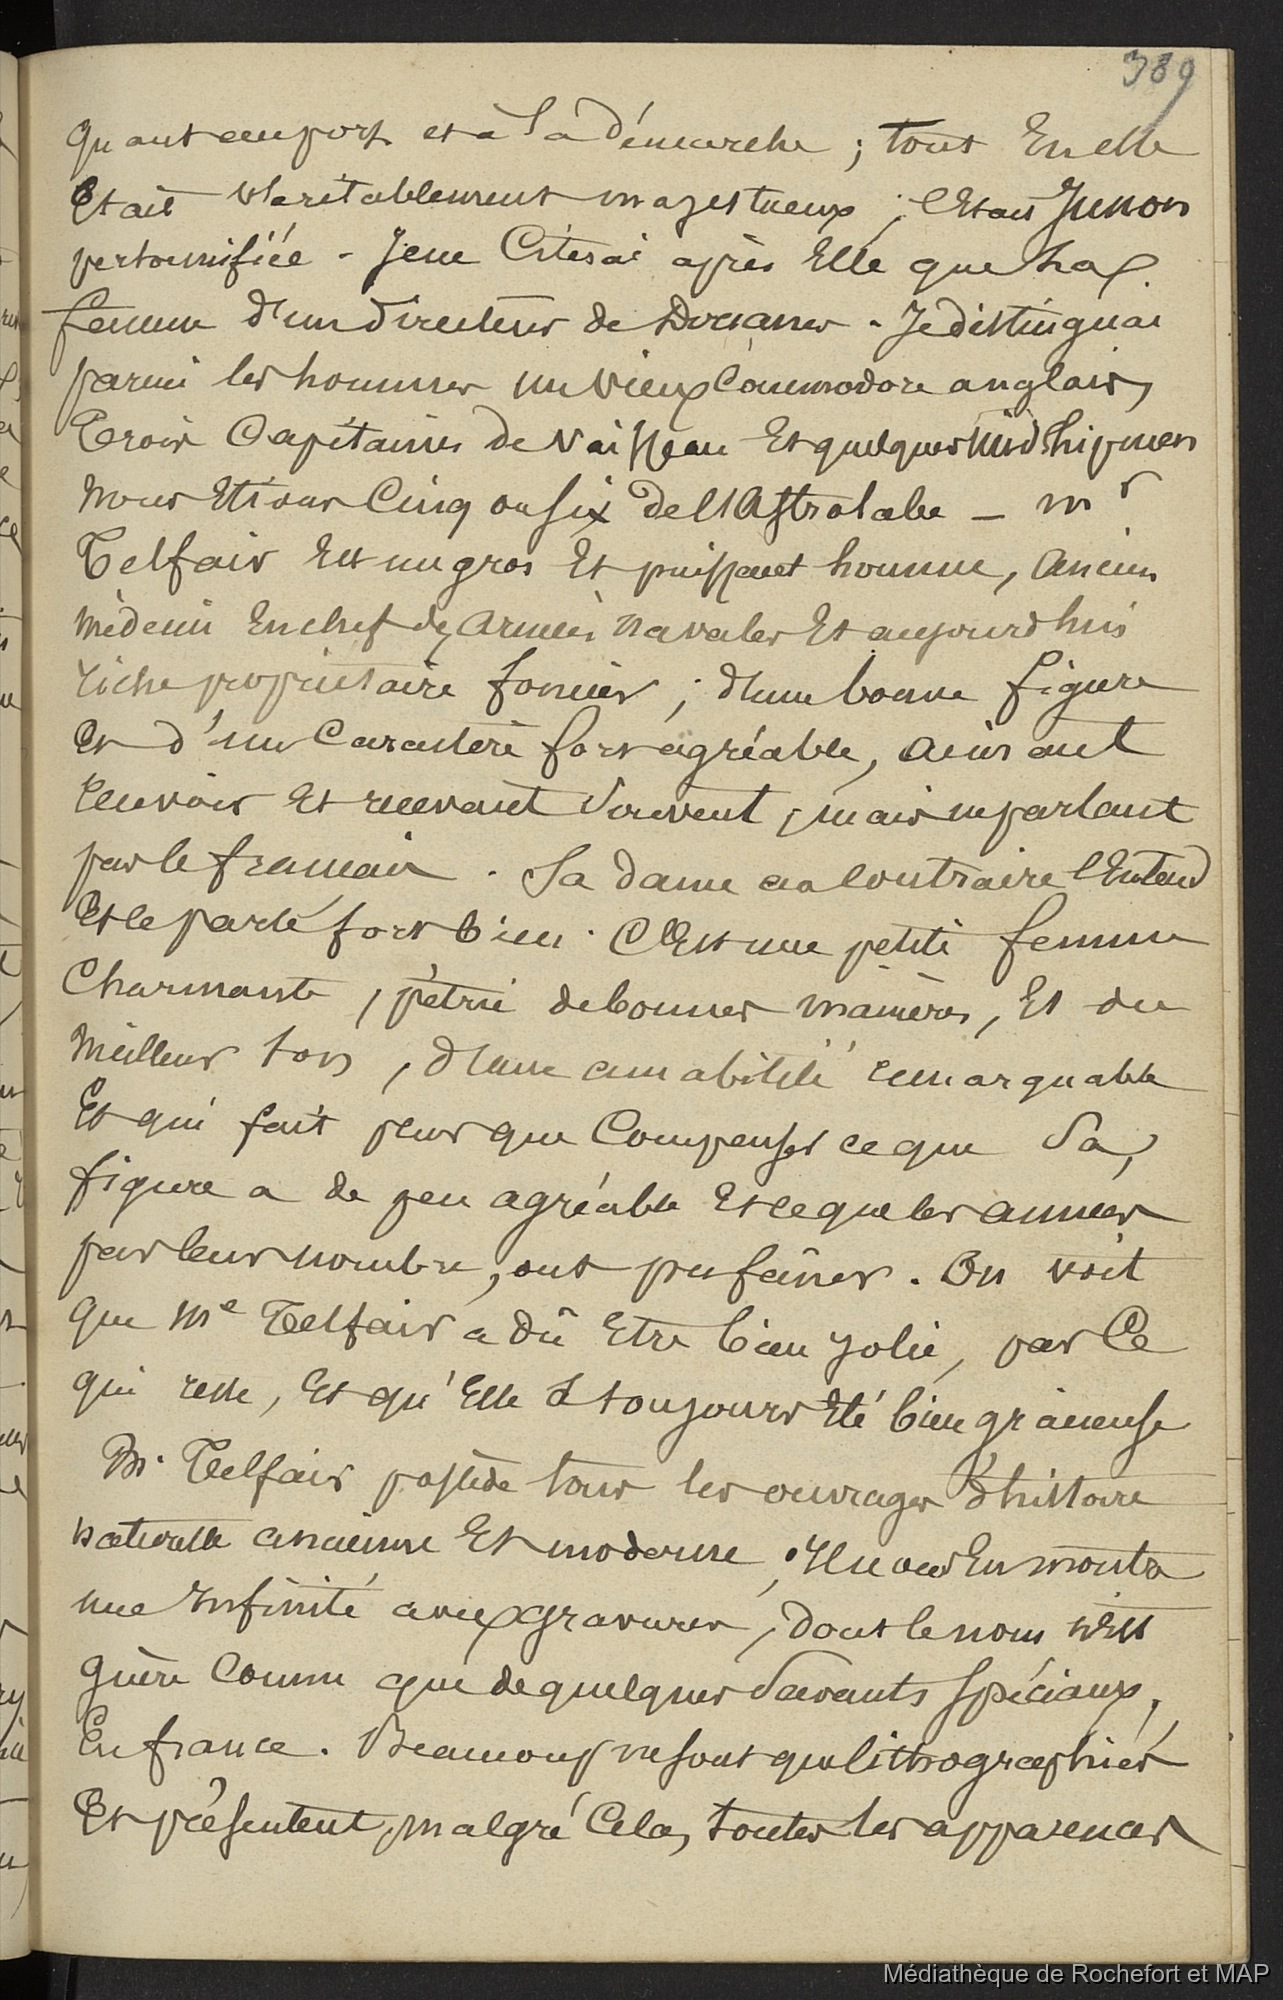 389
quant au port et à la démarche ; tout En elle
Etait véritablement majestueux ; C'était Junon
personnifiée - Je ne Citerai après Elle que la
femme d'un directeur de Douanes - Je distinguai
parmi les hommes un vieux Commodore anglais,
trois Capitaines de vaisseau Et quelques Midshipmen
Nous Etions Cinq ou six de l'Astrolabe - Mr
Telfair Est un gros Et puissant homme, ancien
médecin En chef des armées navales Et aujourd'hui
riche propriétaire foncier ; d'une bonne figure
Et d'un Caractère fort agréable, aimant
à
recevoir Et recevant souvent, mais ne parlant
pas le français . Sa dame au Contraire l'Entend
Et le parle fort bien . C'Est une petite femme
Charmante, pétrie de bonnes manières, Et du
meilleur ton, d'une amabilité remarquable
Et qui fait plus que Compenser ce que sa
figure a de peu agréable Et ce que les années
par leur nombre, ont pu faner . On voit
que Me Telfair a dû Etre bien jolie, par Ce
qui reste, Et qu'Elle a toujours Eté bien gracieuse
M. Telfair possède tous les ouvrages d'histoire
naturelle ancienne Et moderne ; Il nous En montra
une Infinité avec gravures, dont le nom n'Est
guère Connu que de quelques Savants spéciaux,
En france . Beaucoup ne sont que lithographiés
Et présentent, malgré Cela, toutes les apparences
Médiathèque de Rochefort et MAP